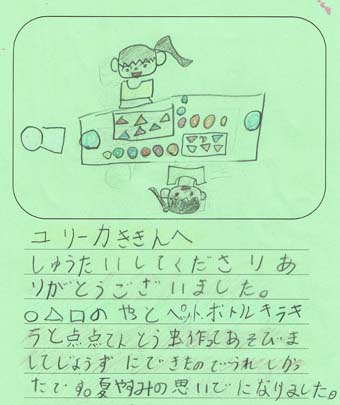 ユリーカききんへ
しゅうたいしてくださりあ
りがとうございました。
○△□のやとペットボトルキラキ
ラと点点てんとう虫作ってあそびま
してじょうずにできたのでうれしかっ
たです。夏やすみの思いでになりました。